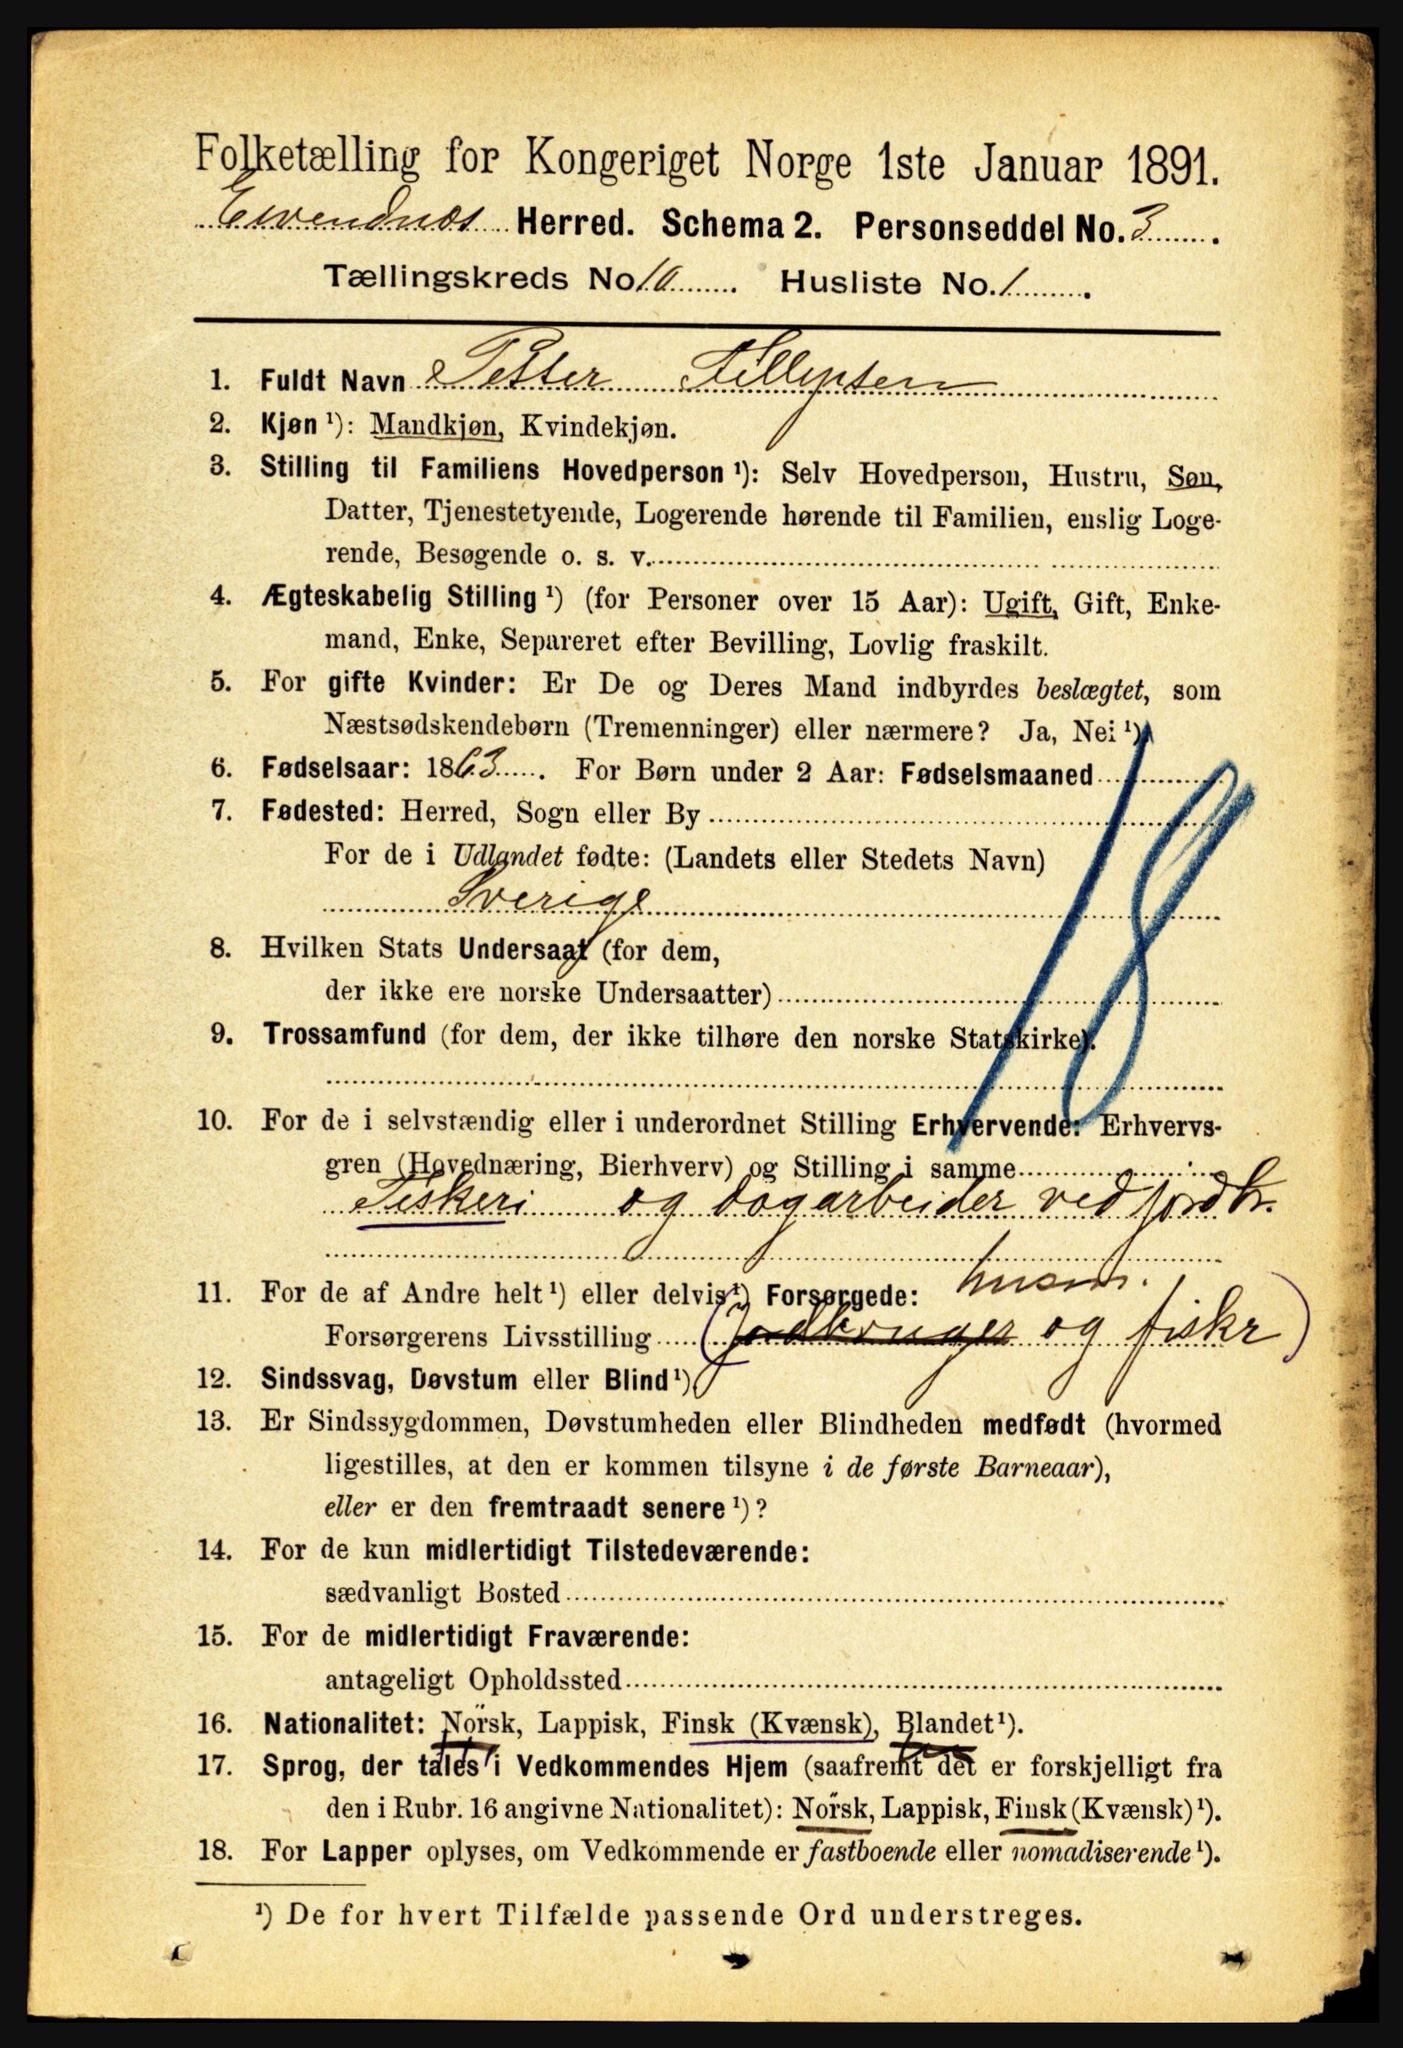 Folketælling for Kongeriget Norge 1ste Januar 1891.
Evendnæs Herred. Schema 2. Personseddel No. 3.
Tællingskreds No. 10. Husliste No. 1.
1. Fuldt Navn Petter Fillipsen
2. Kjøn ¹): Mandkjøn, Kvindekjøn.
3. Stilling til Familiens Hovedperson ¹): Selv Hovedperson, Hustru, Søn,
Datter, Tjenestetyende, Logerende hørende til Familien, enslig Loge-
rende, Besøgende o. s. v.
4. Ægteskabelig Stilling ¹) (for Personer over 15 Aar): Ugift, Gift, Enke-
mand, Enke, Separeret efter Bevilling, Lovlig fraskilt.
5. For gifte Kvinder: Er De og Deres Mand indbyrdes beslægtet, som
Næstsødskendebørn (Tremenninger) eller nærmere? Ja, Nei ¹)
6. Fødselsaar: 1863. For Børn under 2 Aar: Fødselsmaaned
18
7. Fødested: Herred, Sogn eller By
For de i Udlandet fødte: (Landets eller Stedets Navn)
Sverige
8. Hvilken Stats Undersaat (for dem,
der ikke ere norske Undersaatter)
9. Trossamfund (for dem, der ikke tilhøre den norske Statskirke).
10. For de i selvstændig eller i underordnet Stilling Erhvervende: Erhvervs-
gren (Hovednæring, Bierhverv) og Stilling i samme
Fiskeri og dagarbeider ved jordbr.
husm.
11. For de af Andre helt ¹) eller delvis ¹) Forsørgede:
Forsørgerens Livsstilling (jordbruger og fiskr)
12. Sindssvag, Døvstum eller Blind ¹).
13. Er Sindssygdommen, Døvstumheden eller Blindheden medfødt (hvormed
ligestilles, at den er kommen tilsyne i de første Barneaar),
eller er den fremtraadt senere ¹)?
14. For de kun midlertidigt Tilstedeværende:
sædvanligt Bosted
15. For de midlertidigt Fraværende:
antageligt Opholdssted
16. Nationalitet: Norsk, Lappisk, Finsk (Kvænsk), Blandet ¹).
17. Sprog, der tales i Vedkommendes Hjem (saafremt det er forskjelligt fra
den i Rubr. 16 angivne Nationalitet): Norsk, Lappisk, Finsk (Kvænsk) ¹).
18. For Lapper oplyses, om Vedkommende er fastboende eller nomadiserende ¹).
¹) De for hvert Tilfælde passende Ord understreges.